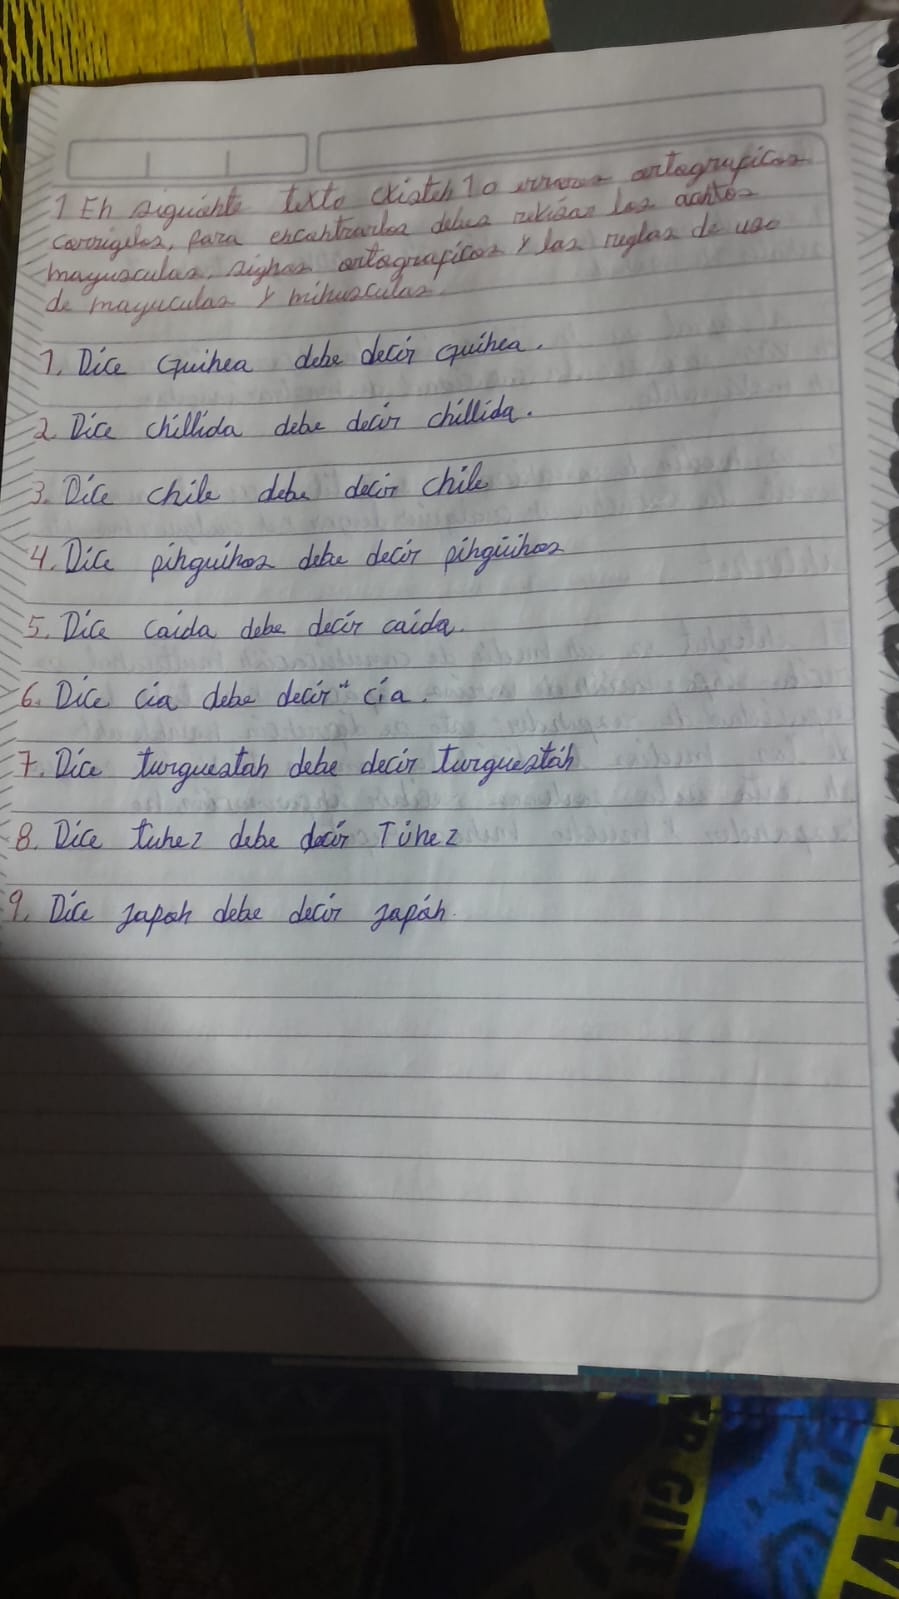 1 En siguiente texto existen 10 errores ortograficos
corrigelos, para encontrarlos debes revisar los acentos
mayusculas, signos ortograficos y las reglas de uso
de mayuculas y minusculas.
1. Dice Guinea debe decir guinea.
2. Dice chillida debe decir chillida.
3. Dice chile debe decir chile
4. Dice pinguinos debe decir pingüinos
5. Dice caida debe decir caída.
6. Dice cia debe decir" cía.
7. Dice turquestan debe decir turquestán
8. Dice tunez debe decir Túnez
9. Dice japon debe decir japón.
GIVE